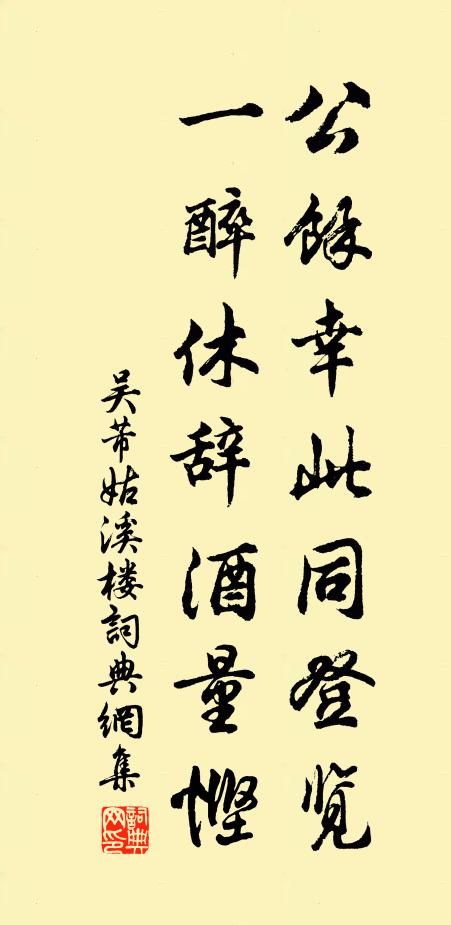 公餘幸此同登览
一醉休辞酒量悭
吴芾姑溪楼詞典網集
詞典网印